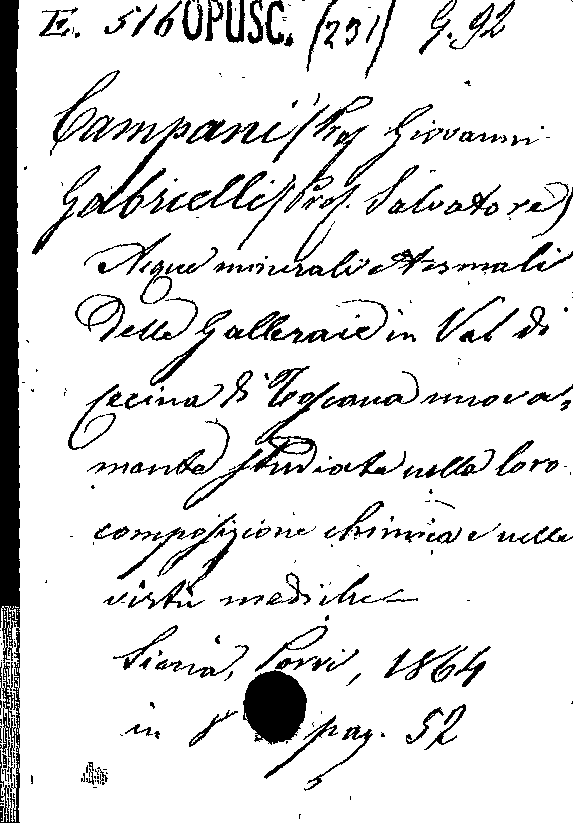 E. 516 OPUSC. (231) G. 92
Campani (Prof Giovanni
Gabrielli (Prof. Salvatore)
Acque minerali e termali
Delle Galleraie in Val di
Cecina di Toscana nuova-
mente studiate nella loro
composizione chimica e nelle
virtù mediche
Siena, Porri, 1864
in 8 pag. 52